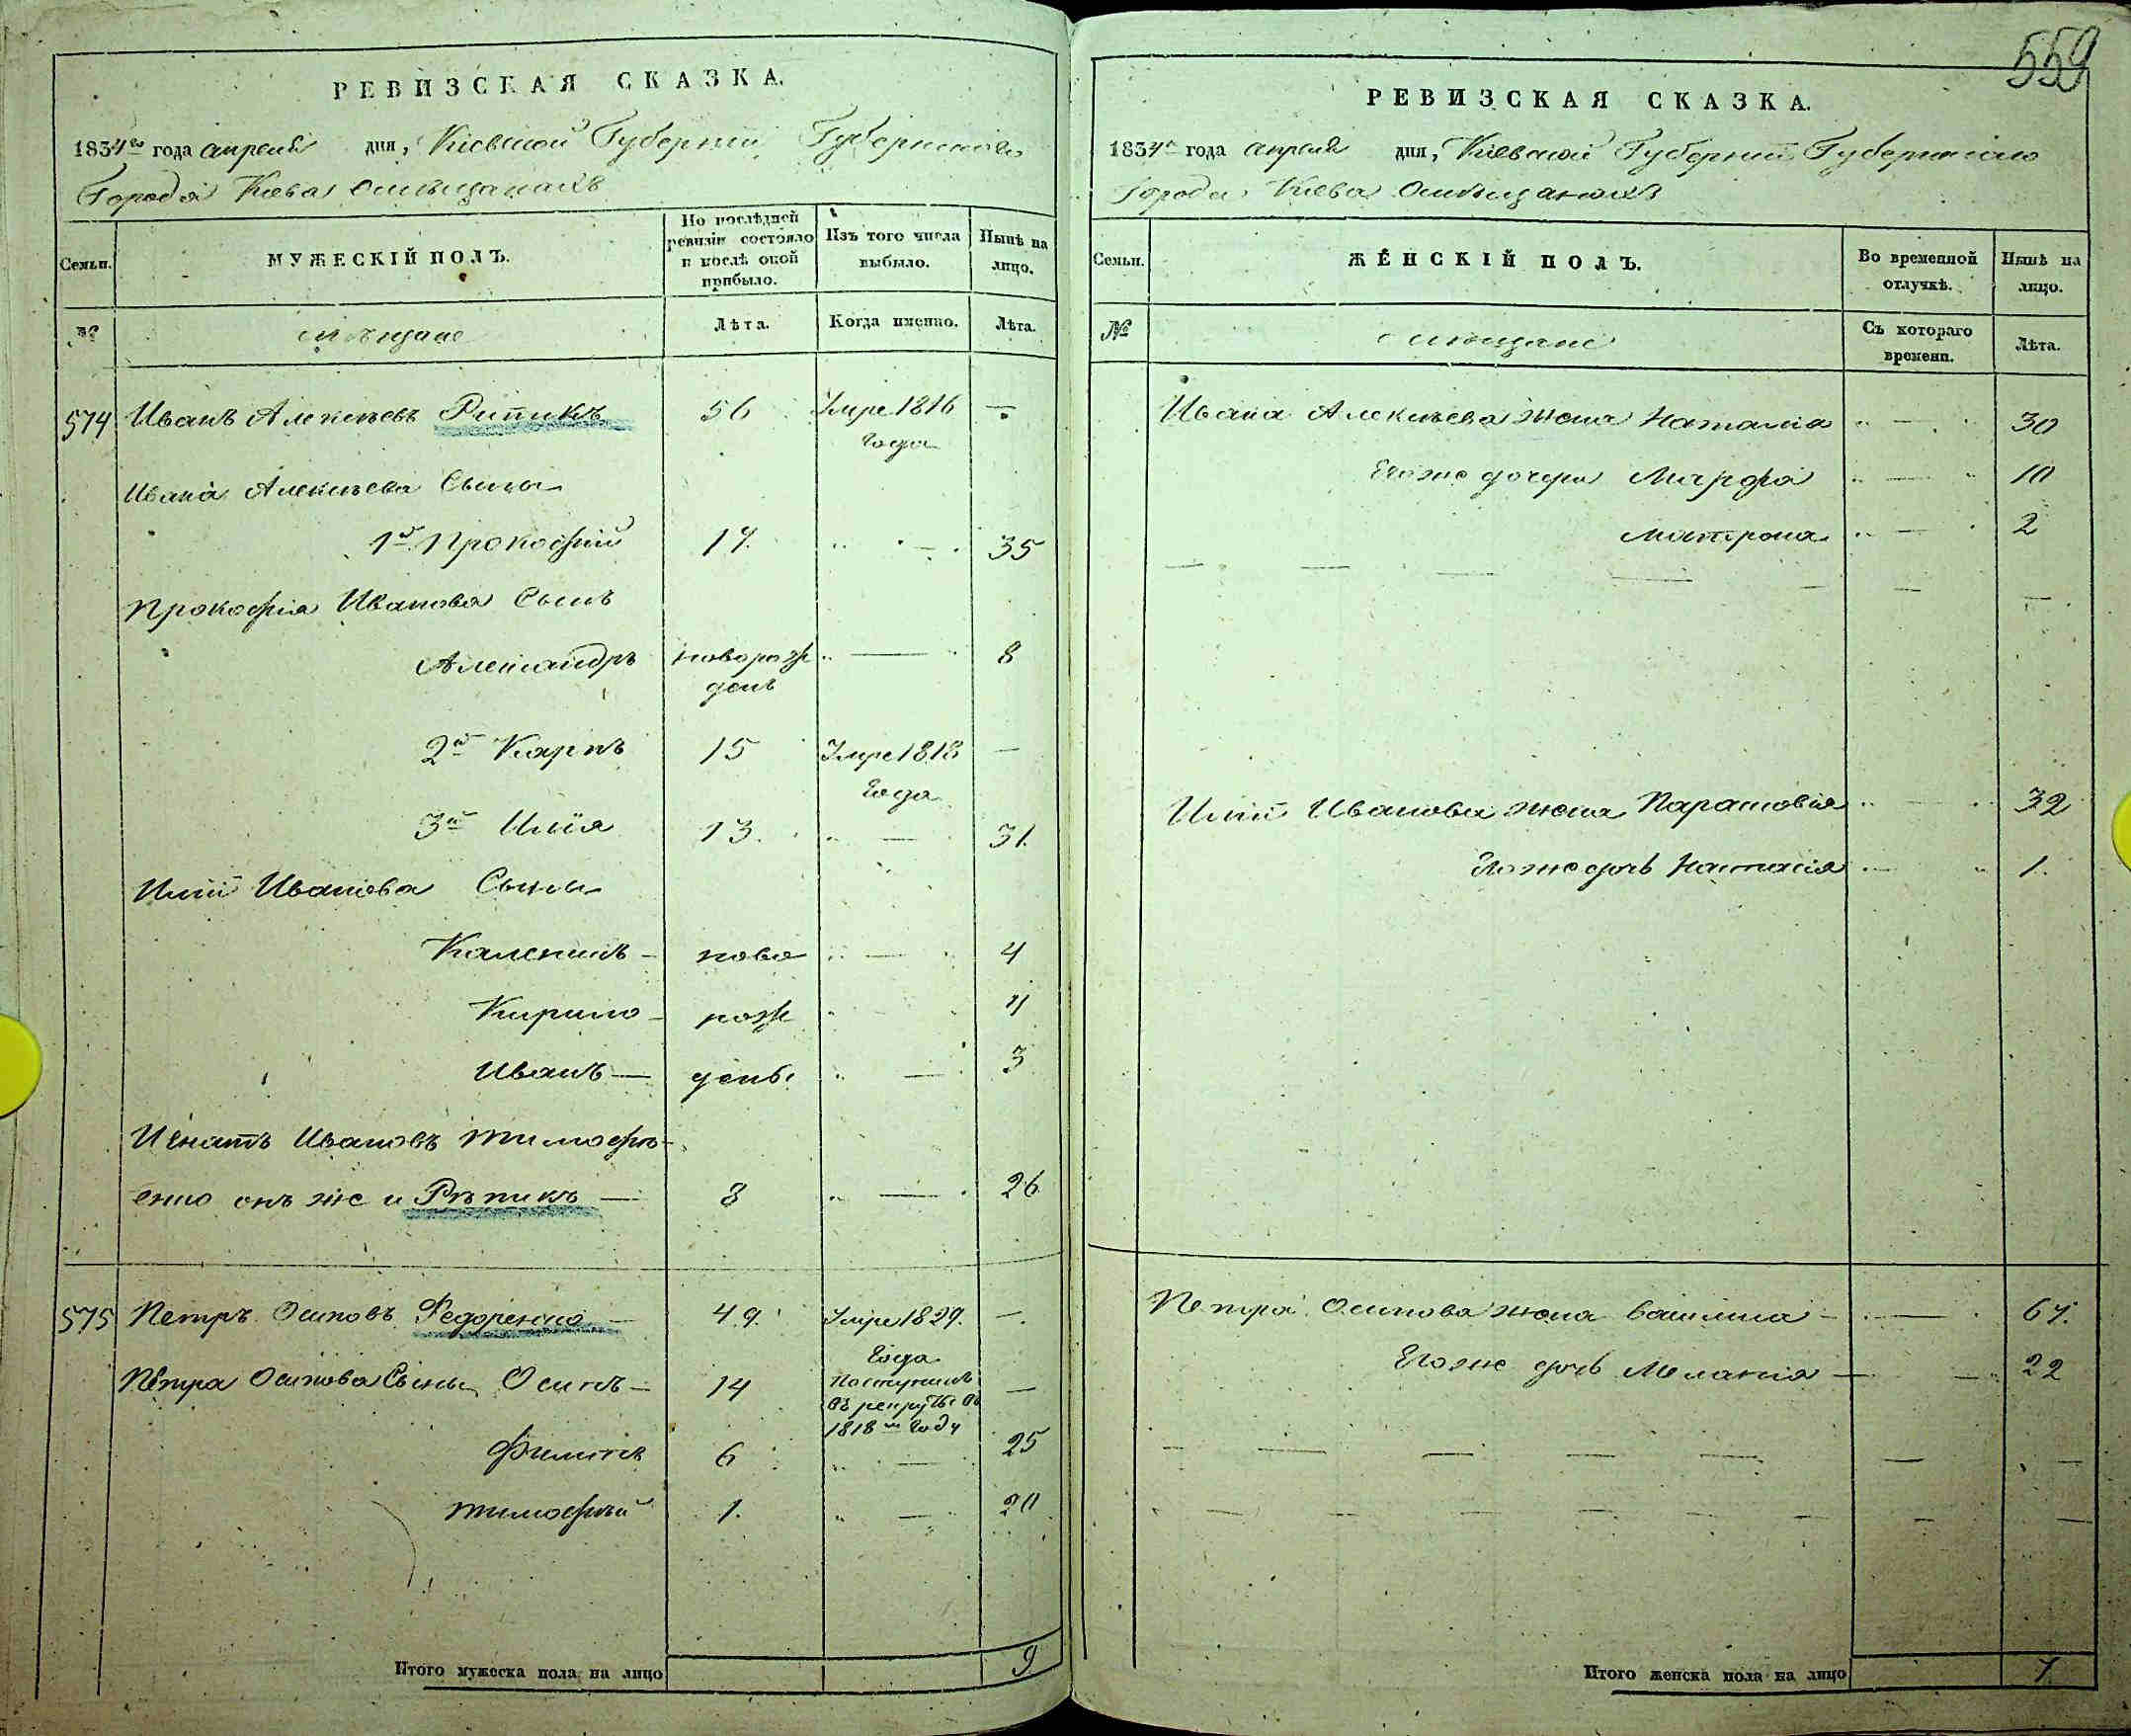 559
РЕВИЗСКАЯ СКАЗКА.
1834го года апреля дня, Кіевской Губерніи Губернскаго
Города Кіева омѣщанахъ
Семьи.
МУЖЕСКІЙ ПОЛЪ.
По послѣдней ревизіи состояло и послѣ оной прибыло.
Изъ того числа выбыло.
Нынѣ на лицо.
№
мѣщане
Лѣта.
Когда именно.
Лѣта.
574 Иванъ Алексѣевъ Рипикъ 56 Умре 1816 —
Года
Ивана Алексѣева Сыны
1й Прокофій 17. " — " 35
Прокофія Иванова Сынъ
Александръ новорож " — " 8
денъ
2й Карпъ 15 Умре 1818 —
Года
3й Илія 13. " — 31.
Иліи Иванова Сыны
Каленикъ — ново " — " 4
Кирило — рож " " 4
Иванъ — дены " — 3
Игнатъ Ивановъ Тимофѣ-
енко онъ же и Рѣпикъ — 8 " — " 26
575 Петръ Осиповъ Федоренко — 49. Умре 1829. —
Года
Петра Осипова Сыны Осипъ — 14 Поступилъ —
въ рекруты въ
1818м Году
Филипъ 6 " — 25
Тимофѣй 1. " — 20
Итого мужеска пола на лицо 9
РЕВИЗСКАЯ СКАЗКА.
1834го года апреля дня, Кіевской Губерніи Губернскаго
Города Кіева Омѣщанахъ
Семьи.
ЖЕНСКІЙ ПОЛЪ.
Во временной отлучкѣ.
Нынѣ на лицо.
№
мѣщане
Съ котораго времени.
Лѣта.
Ивана Алексѣева жена Наталія " — " 30
Егоже дочери Марфа " — " 10
Матрона " — " 2
Иліи Иванова жена Парасковія " — " 32
Егоже дочь Настасія " — " 1.
Петра Осипова жена Василиса — " — " 67.
Егоже дочь Меланія — — " 22
Итого женска пола на лицо 7.